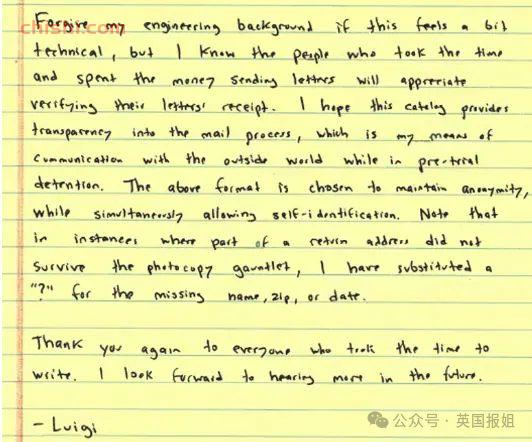 chishi.com
Forgive my engineering background if this feels a bit
technical, but I know the people who took the time
and spent the money sending letters will appreciate
verifying their letters' receipt. I hope this catalog provides
transparency into the mail process, which is my means of
communication with the outside world while in pre-trial
detention. The above format is chosen to maintain anonymity,
while simultaneously allowing self-identification. Note that
in instances where part of a return address did not
survive the photocopy gauntlet, I have substituted a
"?" for the missing name, zip, or date.
Thank you again to everyone who took the time to
write. I look forward to hearing more in the future.
- Luigi
公众号 · 英国报姐